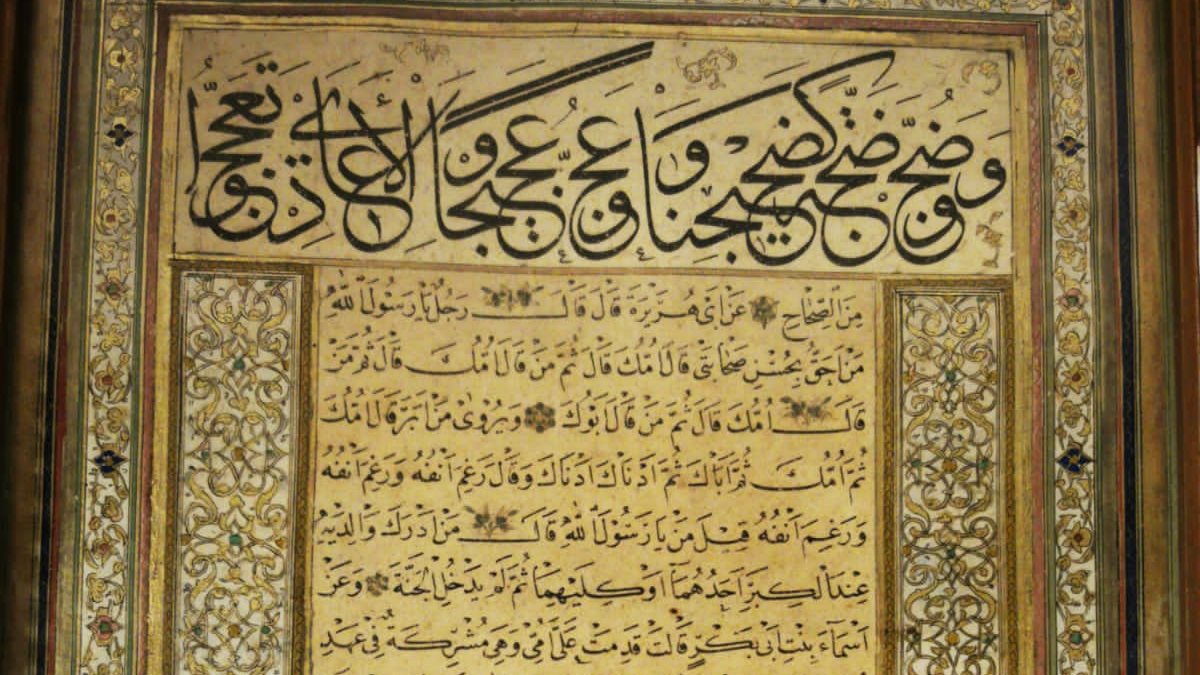 وَعَجَّ عَجِيجًا وَالْأَعَادِي تَعَجَّبُوا
مِنَ الصِّحَاحِ عَنْ اَبِى هُرَيْرَةَ قَالَ قَالَ رَجُلٌ يَا رَسُولَ اللّٰهِ
مَنْ اَحَقُّ بِحُسْنِ صَحَابَتِى قَالَ اُمُّكَ قَالَ ثُمَّ مَنْ قَالَ اُمُّكَ قَالَ ثُمَّ مَنْ
قَالَ اُمُّكَ قَالَ ثُمَّ مَنْ قَالَ اَبُوكَ وَيُرْوٰى مَنْ اَبَرُّ قَالَ اُمُّكَ
ثُمَّ اُمُّكَ ثُمَّ اَبَاكَ ثُمَّ اَدْنَاكَ اَدْنَاكَ وَقَالَ رَغِمَ اَنْفُهُ وَرَغِمَ اَنْفُهُ
وَرَغِمَ اَنْفُهُ قِيلَ مَنْ يَا رَسُولَ اللّٰهِ قَالَ مَنْ اَدْرَكَ وَالِدَيْهِ
عِنْدَ الْكِبَرِ اَحَدُهُمَا اَوْ كِلَيْهِمَا ثُمَّ لَمْ يَدْخُلِ الْجَنَّةَ وَعَنْ
اَسْمَآءَ بِنْتِ اَبِى بَكْرٍ قَالَتْ قَدِمَتْ عَلَىَّ اُمِّى وَهِىَ مُشْرِكَةٌ فِى عَهْدِ